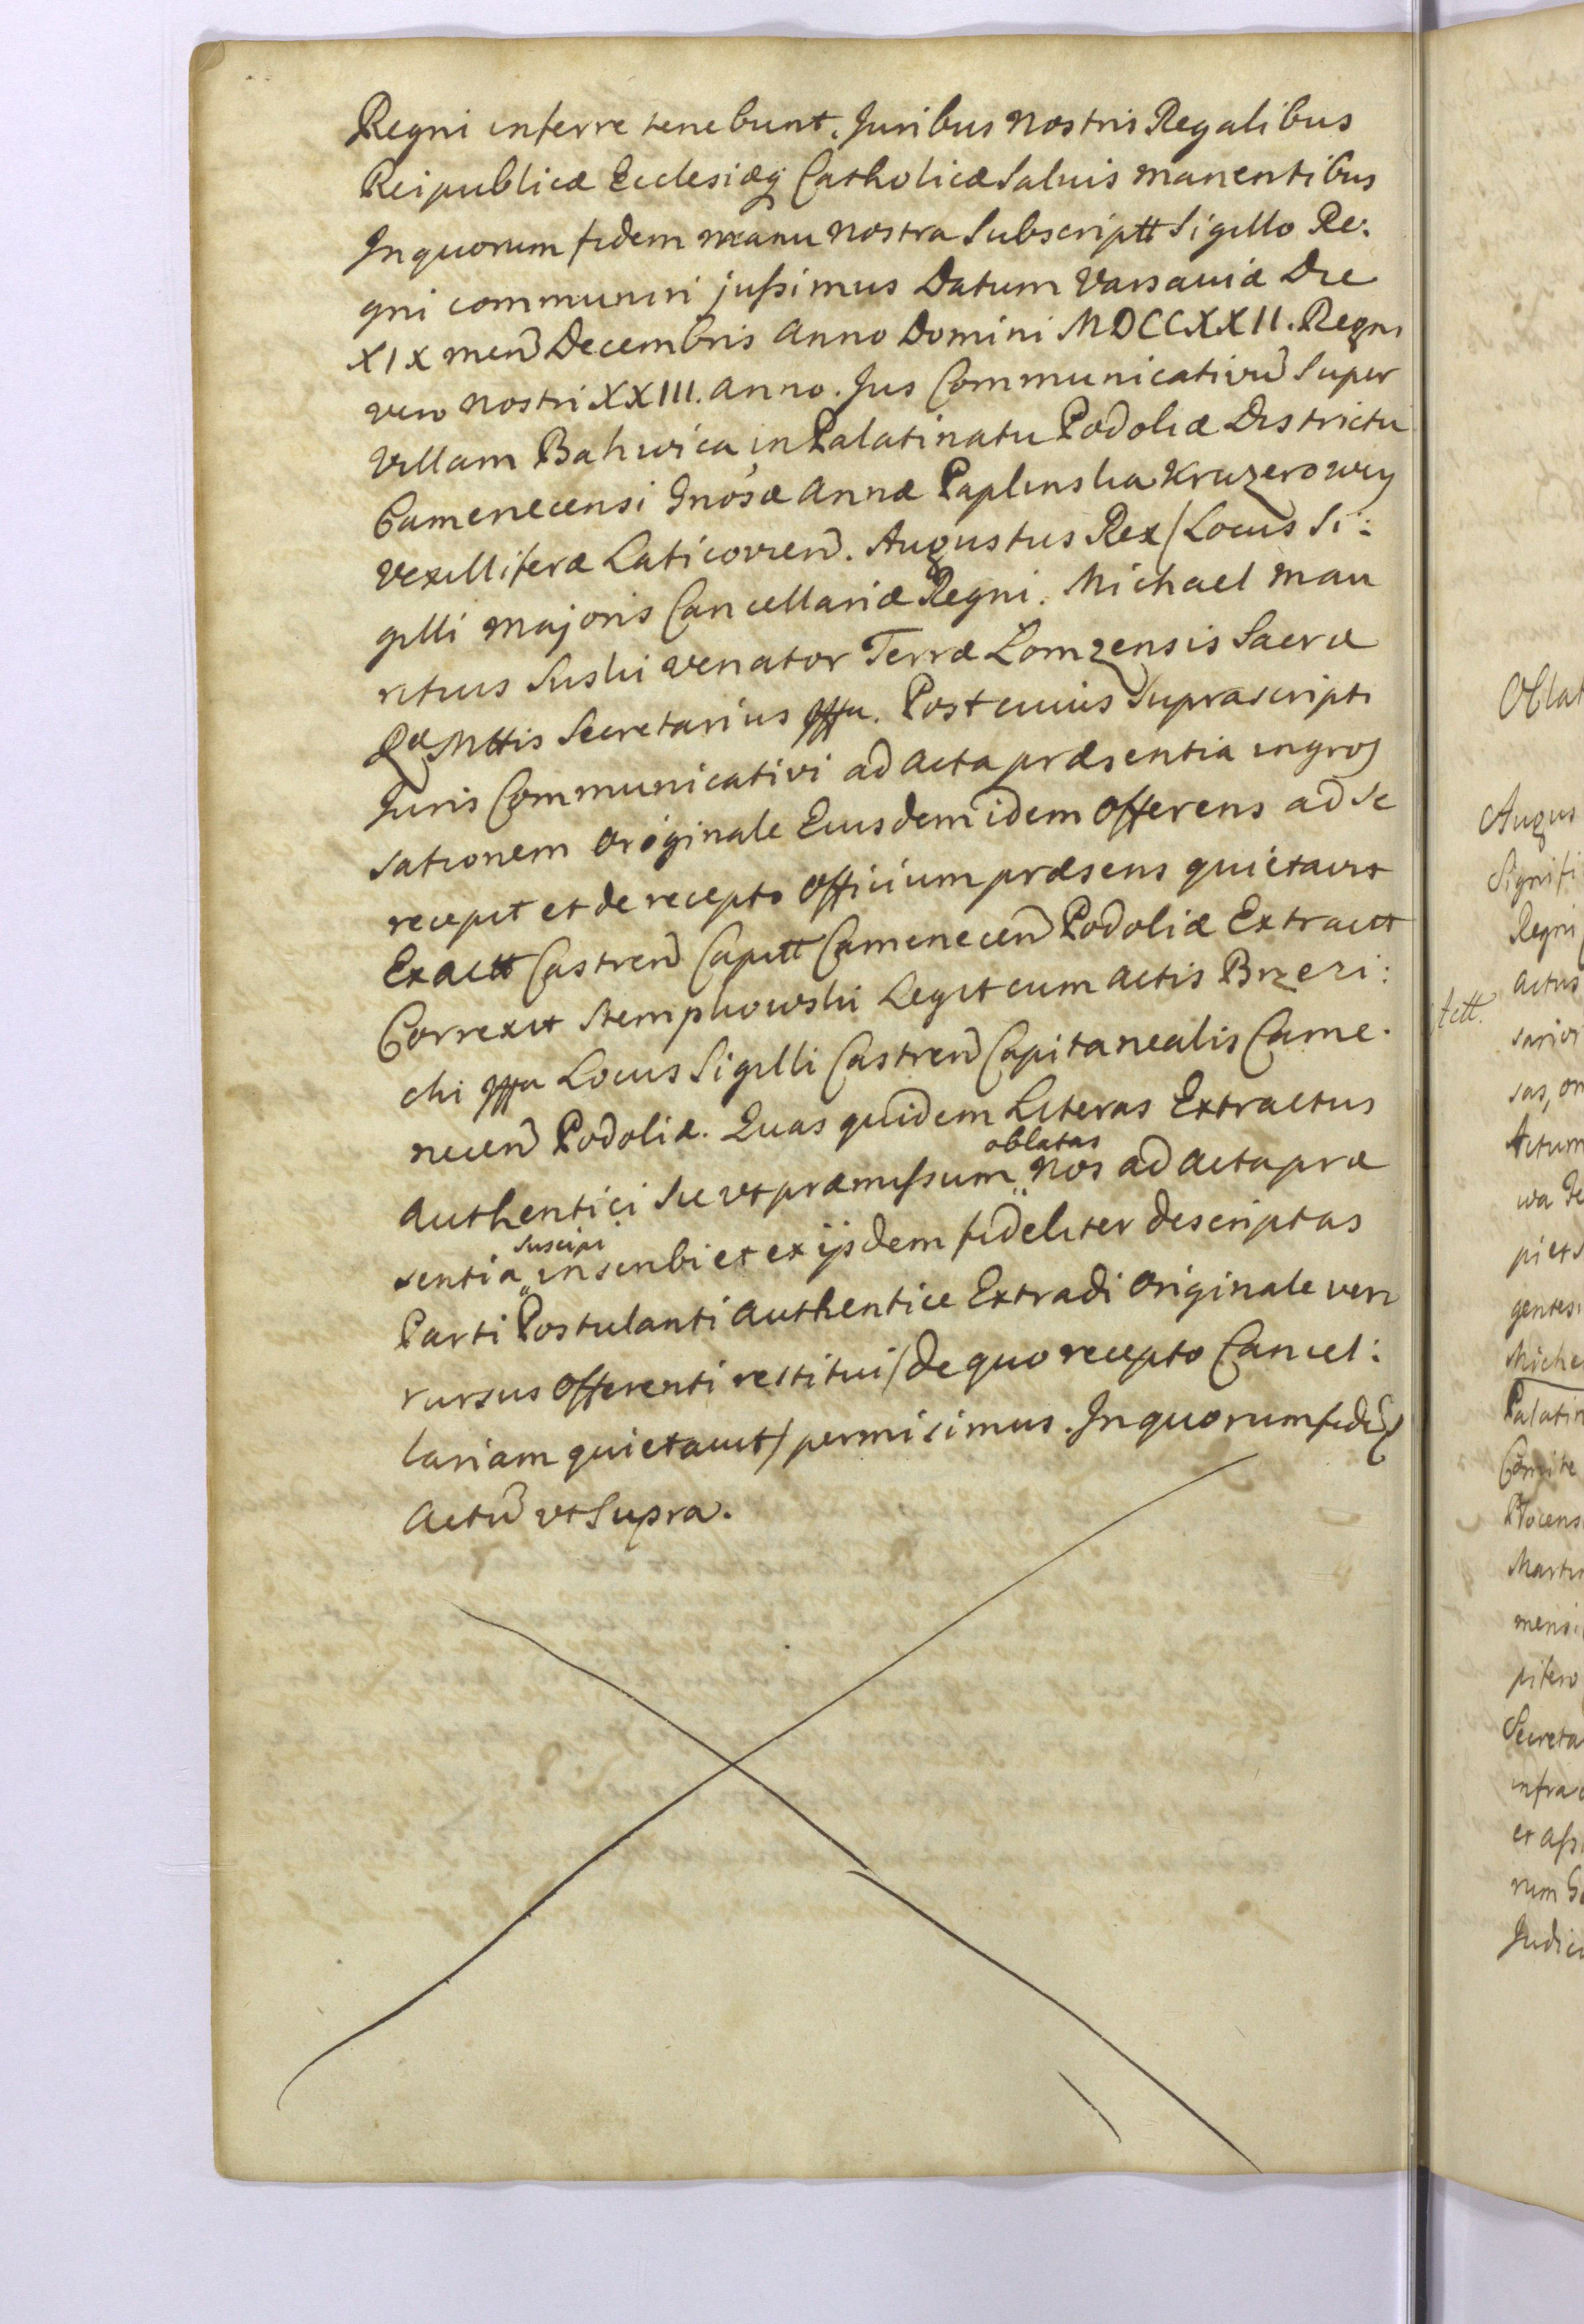 Regni inferre tenebunt. Juribus Nostris Regalibus
Reipublicæ Ecclesiæq Catholicæ Salvis manentibus
In quorum fidem manu nostra Subscriptt Sigillo Re:
gni communiri jussimus Datum Varsaviæ Die
XIX men Decembris Anno Domini MDCCXXII. Regni
vero nostri XXIII. Anno. Jus Communicativũ Super
Villam Bahwica in Palatinatu Podoliæ Districtu
Camenecensi Gnosæ Annæ Paplinska Kruzerowey
Vexilliferæ Laticovien. Augustus Rex / Locus Si:
gilli Majoris Cancellariæ Regni. Michael Mau
ritius Suski Venator Terræ Łomzensis Sacræ
Ræ Mttis Secretarius mppa. Post cuius Suprascripti
Juris Communicativi ad Acta præsentia ingros
sationem Originale Eiusdem idem Offerens ad se
recepit et de recepto Officium præsens quietavit
Ex Actt Castren Capitt Camenecen Podoliæ Extractt
Correxit Stempkowski Legit cum Actis Brzezi:
cki mppa Locus Sigilli Castren Capitanealis Came:
necen Podoliæ. Quas quidem Literas Extractus
oblatas
Authentici Sic ut præmissum Nos ad Acta præ
suscipi
sentia inscribi et ex ijsdem fideliter descriptas
Parti Postulanti Authentice Extradi Originale vero
rursus Offerenti restitui / de quo recepto Cancel:
lariam quietavit / permisimus. In quorum fidẽ
Actũ ut Supra.
actt.
Oblat
Augus
Signifi
Regni
Actus
sarior
sas, om
Actum
piets
gentesi
Miche
Palatin
Comite
Plocens
Marti
mensi
pitero
Secreta
infrac
et assi
rum
Judici